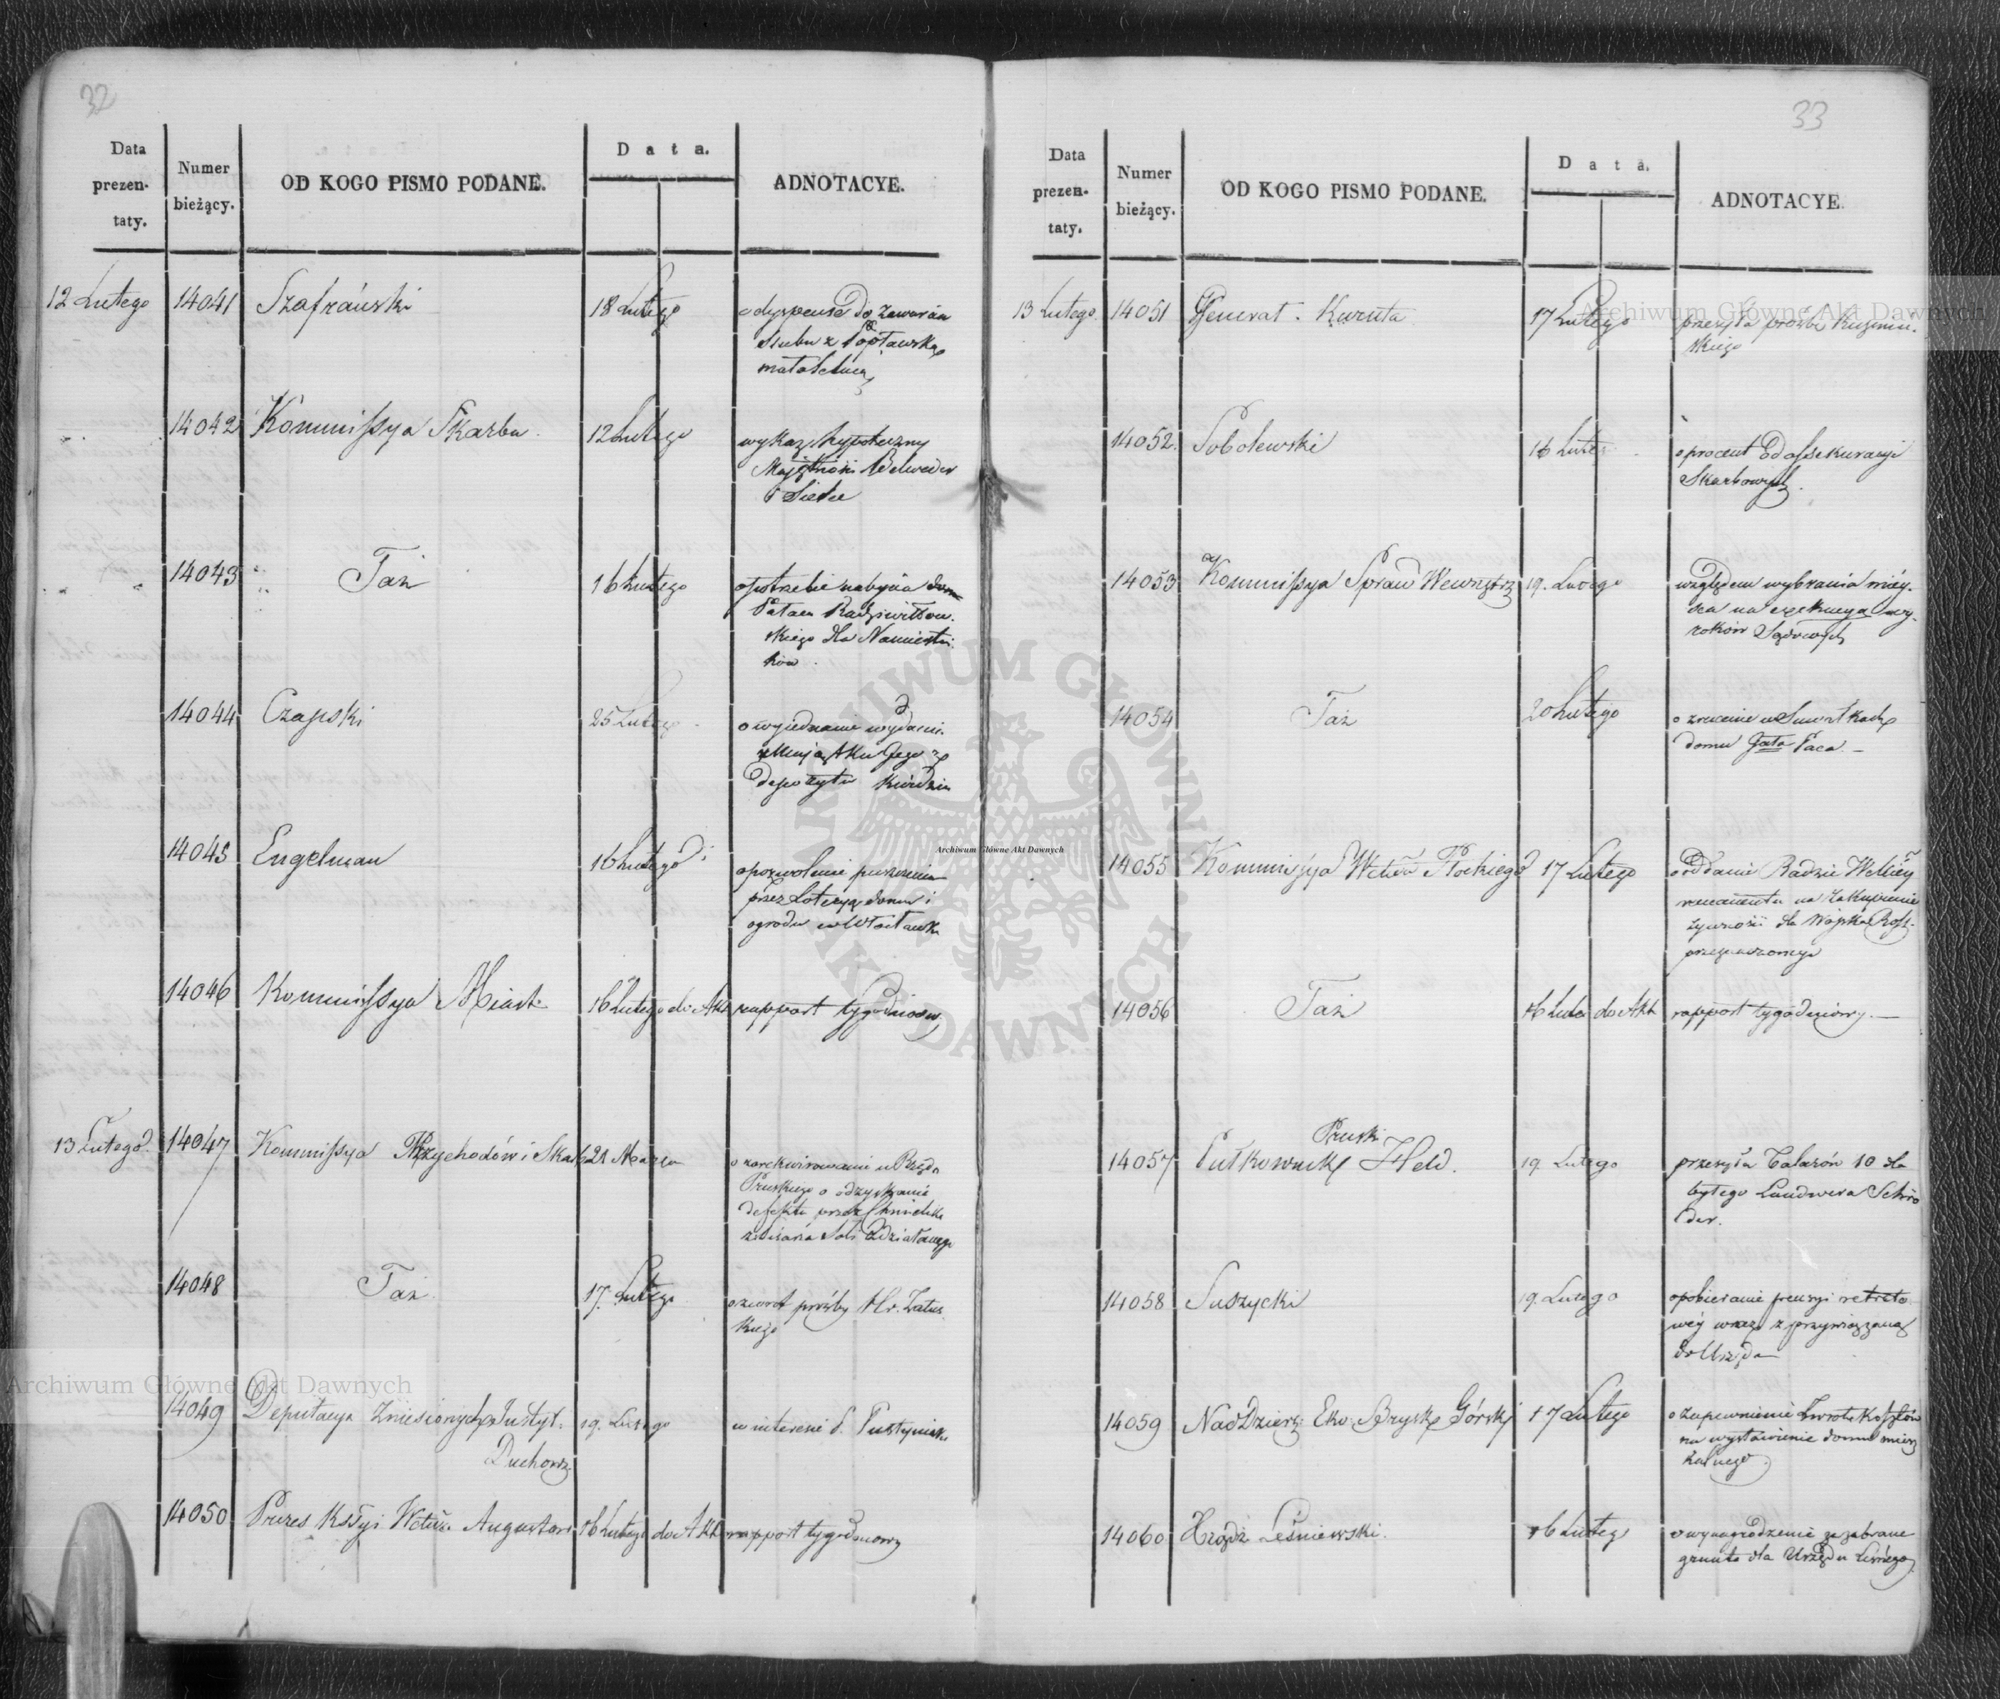 32
Data
prezen-
taty.
Numer
bieżący.
OD KOGO PISMO PODANE.
Data.
ADNOTACYE.
12 Lutego 14041 Szafrański 18 Lutego o dyspensę do zawarcia
ślubu z Popławską
małoletnią
14042 Kommissya Skarbu 12 Lutego wykaz hypoteczny
Majętności Belweder
i Sielce
14043 Taż 16 Lutego o potrzebie nabycia
Pałacu Radziwiłłow-
skiego dla Namiestni-
ków
14044 Czapski 25 Lutego o wyjednanie
majątku Jego z
depozytu
14045 Engelman 16 Lutego o pozwolenie puszczenia
przez Loteryą domu i
ogrodu w Włocławku
14046 Kommissya Miast 16 Lutego do Akt rapport tygodniowy
13 Lutego 14047 Kommissya Przychodów i Skarb 21 Marca o zarekwirowanie u Rządu
Pruskiego o odzyskanie
defektu przez
Soli zdziałanego
14048 Taż 17. Lutego o zwrot prośby
14049 Deputacya Zniesionych Instyt. 19. Lutego w interesie
Duchow.
14050 Prezes Kssyi Wdztwa Augustow 16 Lutego do Akt rapport tygodniowy
33
Data
prezen-
taty.
Numer
bieżący.
OD KOGO PISMO PODANE.
Data.
ADNOTACYE.
13 Lutego 14051 Generał Kuruta 17 Lutego przesyła prośbę
skiego
14052 Sobolewski 16 Luteg o procent od assekuracyi
Skarbowych
14053 Kommissya Spraw Wewnętrz 19. Lutego względem wybrania miey-
sca na exekucyą wy-
roków Sądowych
14054 Taż 20 Lutego o zrucenie w Suwałkach
domu Paca
14055 Kommissya Wdztwa Płockiego 17 Lutego o oddanie Radzie
remanentu na zakupienie
żywności dla Woyska Ross-
przeznaczonego
14056 Taż 16 Luteg do Akt rapport tygodniowy
Pruski
14057 Pułkownik Held 19 Lutego przesyła Talarów 10 dla
byłego Landwera Schrö
der.
14058 Suszycki 19. Lutego o pobieranie pensyi retreto-
wéy wraz z przywiązaną
do Urzędu
14059 NadDzierż: Eko: Brysk Górski 17 Lutego o zapewnienie zwrotu kosztów
na wystawienie domu miesz
kalnego
14060 Leśniewski 16 Lutego o wynagrodzenie za zabrane
grunta dla Urzędu
Archiwum Główne Akt Dawnych
Archiwum Główne Akt Dawnych
Archiwum Główne Akt Dawnych
ARCHIWUM GŁÓWNE AKT DAWNYCH